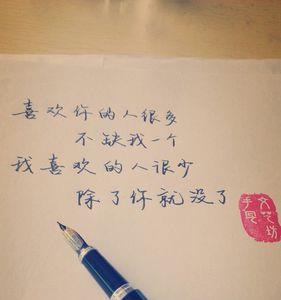 喜欢你的人很多
不缺我一个
我喜欢的人很少
除了你就没了